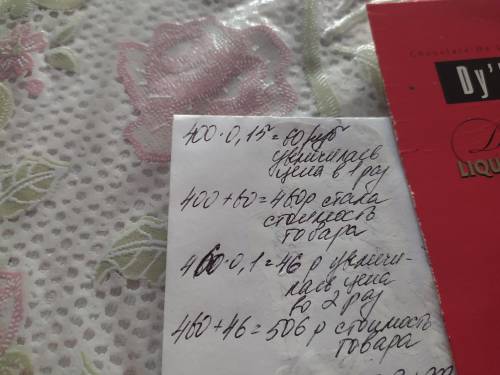 400·0,15=60 руб
увеличилась
цена в 1 раз
400+60=460р стала
стоимость
товара
460·0,1=46 р увеличи-
лась цена
во 2 раз
460+46=506 р стоимость
товара
Chocolate
Dy'
LIQU